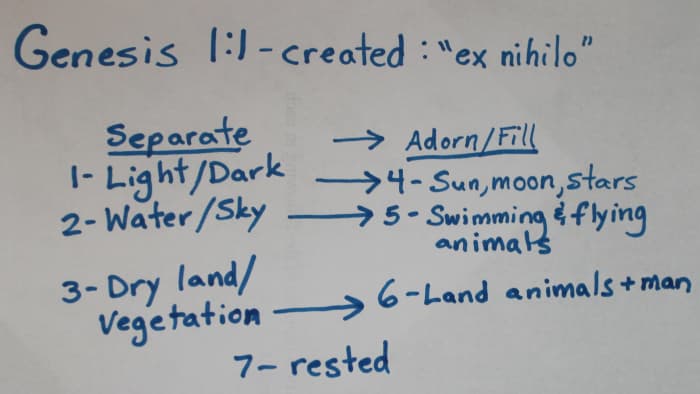 Genesis 1:1 - created : "ex nihilo"
Separate → Adorn/Fill
1- Light/Dark → 4- Sun, moon, stars
2- Water/Sky → 5- Swimming & flying
animals
3- Dry land/
Vegetation → 6- Land animals + man
7- rested